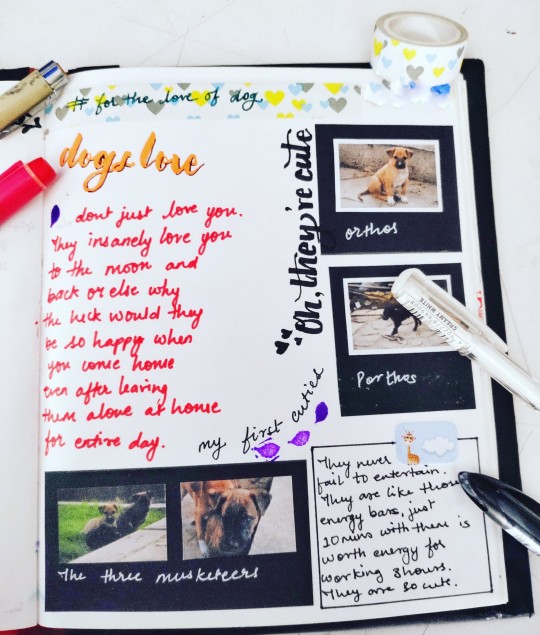 # for the love of dog
dogs love
dont just love you.
They insanely love you
to the moon and
back or else why
the heck would they
be so happy when
you come home
even after leaving
them alone at home
for entire day.
"Oh, they're cute
my first cuties
orthos
Porthos
CREAMY WHITE
The three musketeers
They never
fail to entertain.
They are like those
energy bars, just
10 mins with them is
worth energy for
working 3 hours.
They are so cute.